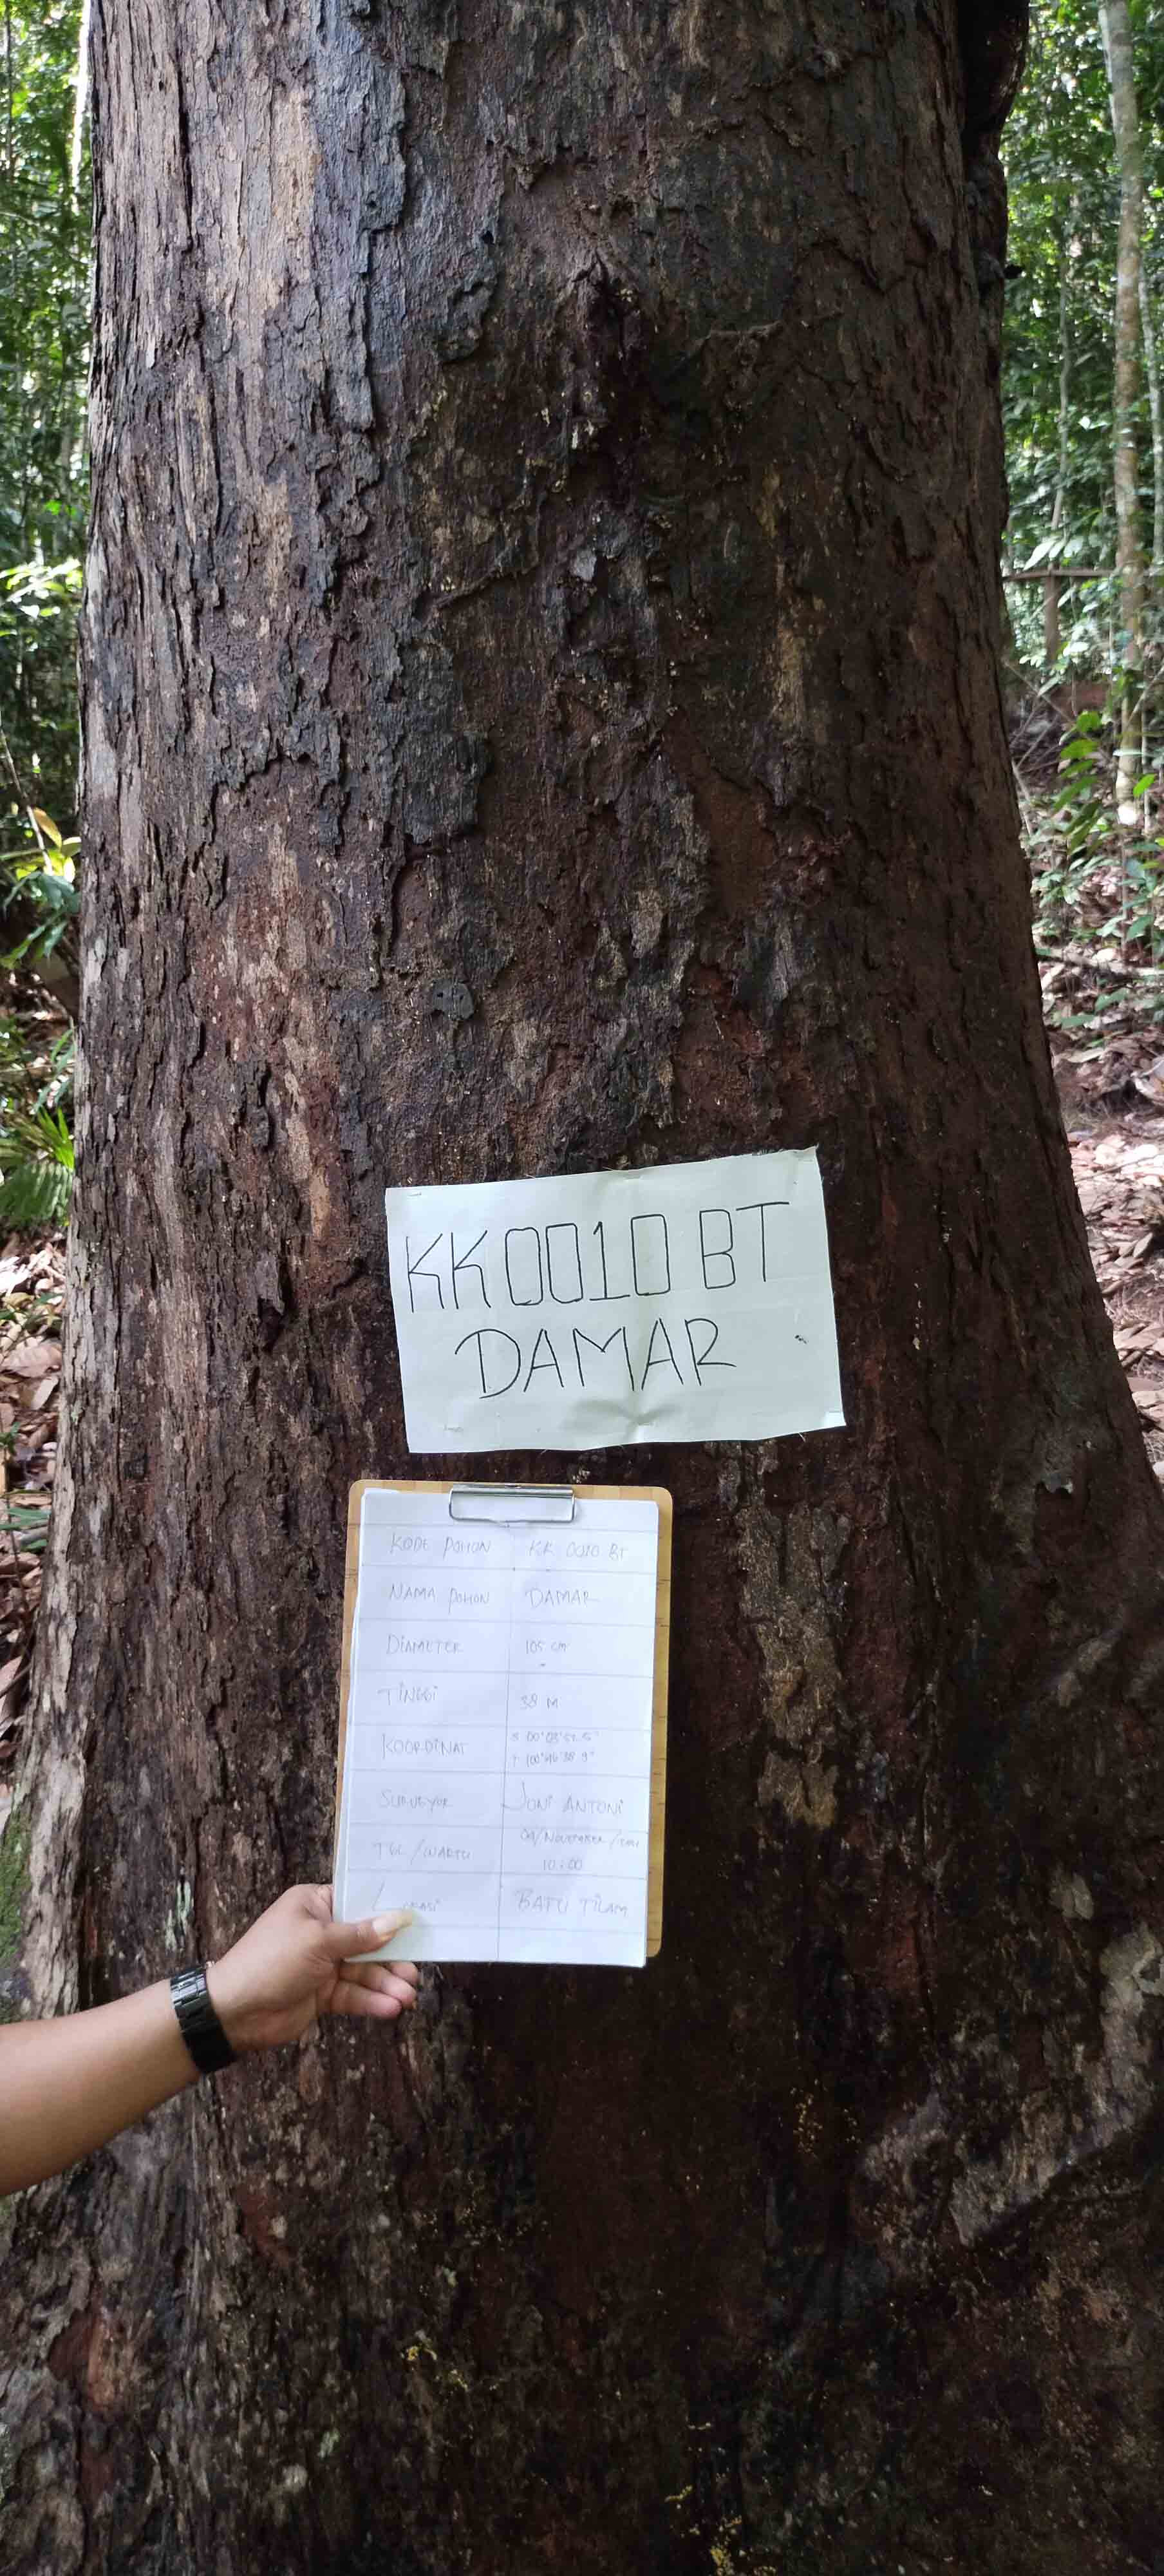 KK0010 BT
DAMAR
KODE POHON KK 0010 BT
NAMA POHON DAMAR
DIAMETER 105 cm
TINGGI 38 M
KOORDINAT
SURVEYOR JONI ANTONI
TGL/WAKTU 09/NOVEMBER/
10:00
LOKASI BATU TILAM